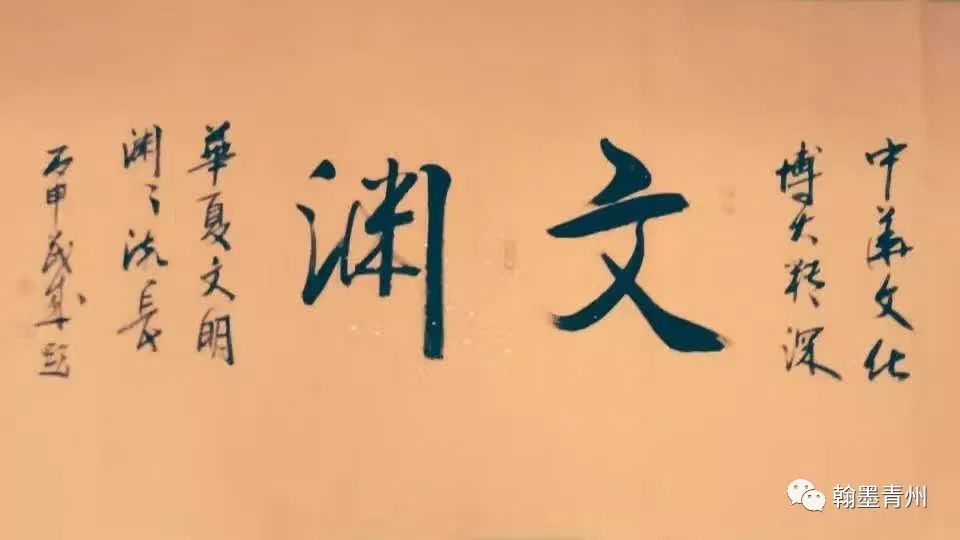 中華文化
博大精深
文渊
華夏文明
渊々流長
丙申民生题
翰墨青州